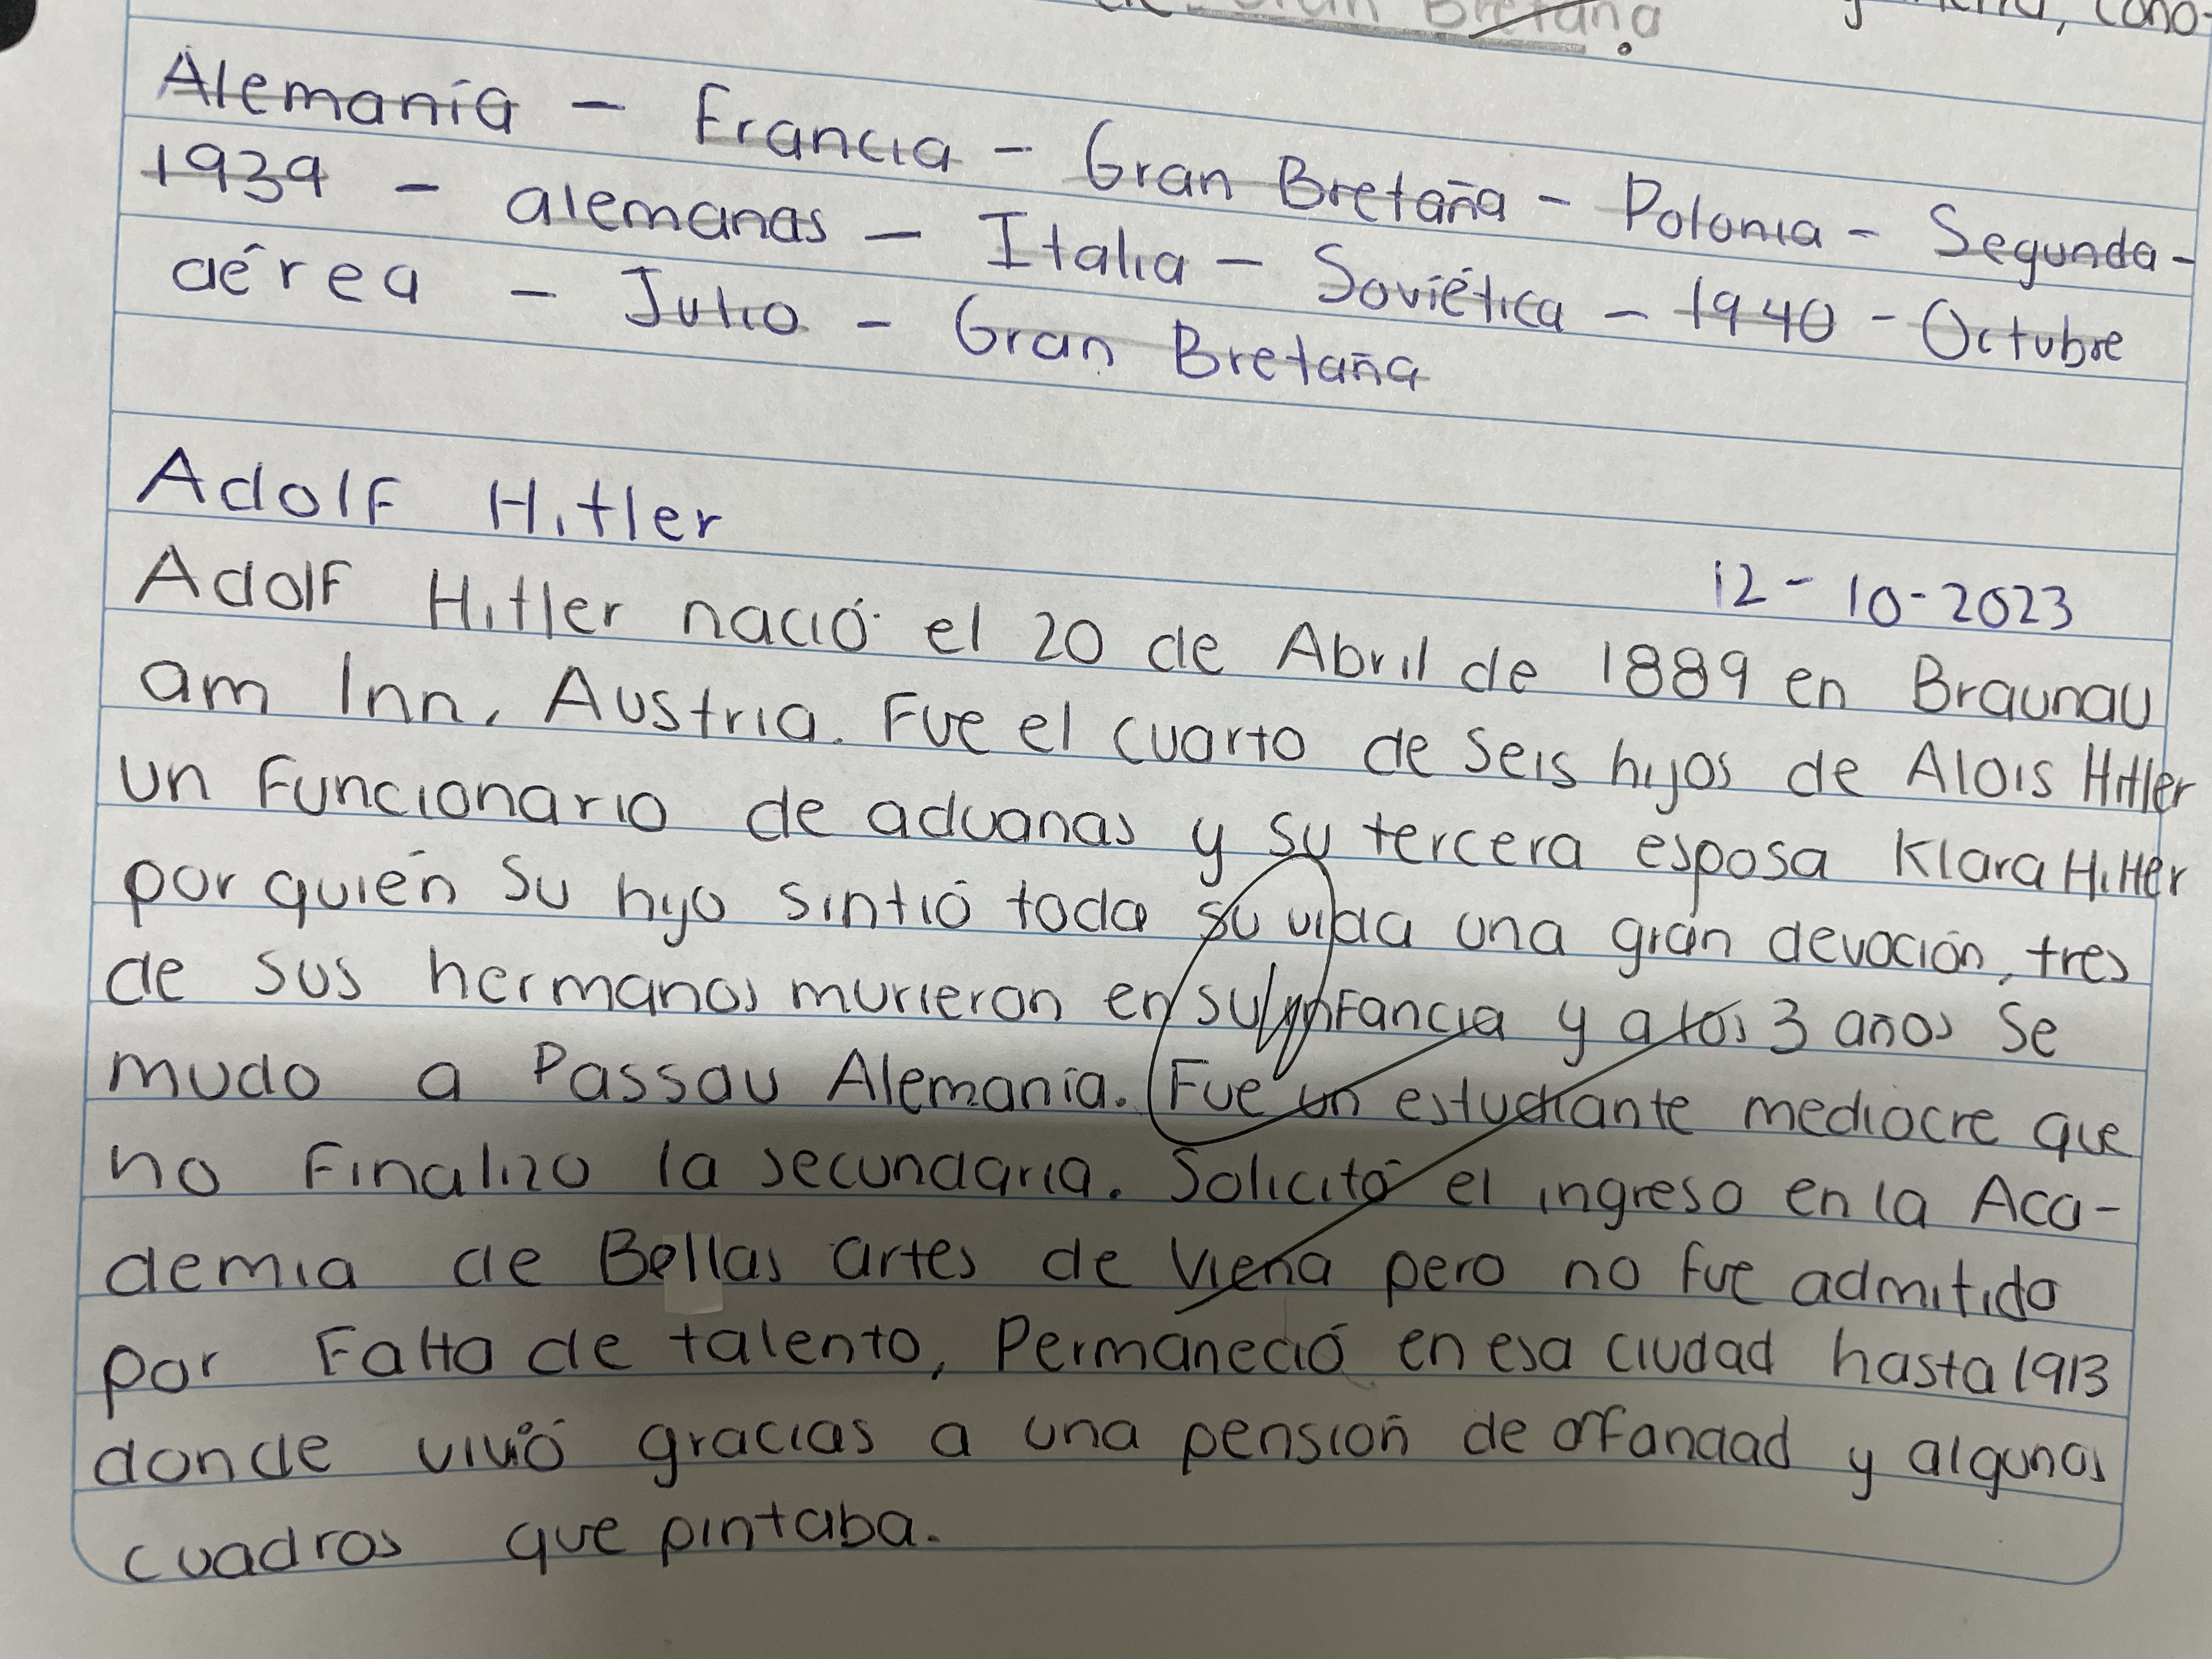 Gran Bretaña.
Alemania - Francia - Gran Bretaña - Polonia - Segunda -
1939 - alemanas - Italia - Soviética - 1940 - Octubre
aérea - Julio - Gran Bretaña
Adolf Hitler
12-10-2023
Adolf Hitler nació el 20 de Abril de 1889 en Braunau
am Inn, Austria. Fue el cuarto de seis hijos de Alois Hitler
un funcionario de aduanas y su tercera esposa Klara Hitler
por quién su hijo sintió toda su vida una gran devoción, tres
de sus hermanos murieron en su infancia y a los 3 años se
mudo a Passau Alemania. Fue un estudiante mediocre que
no finalizo la secundaria. Solicitó el ingreso en la Aca-
demia de Bellas artes de Viena pero no fue admitido
por falta de talento, Permaneció en esa ciudad hasta 1913
donde vivió gracias a una pensión de orfandad y algunos
cuadros que pintaba.